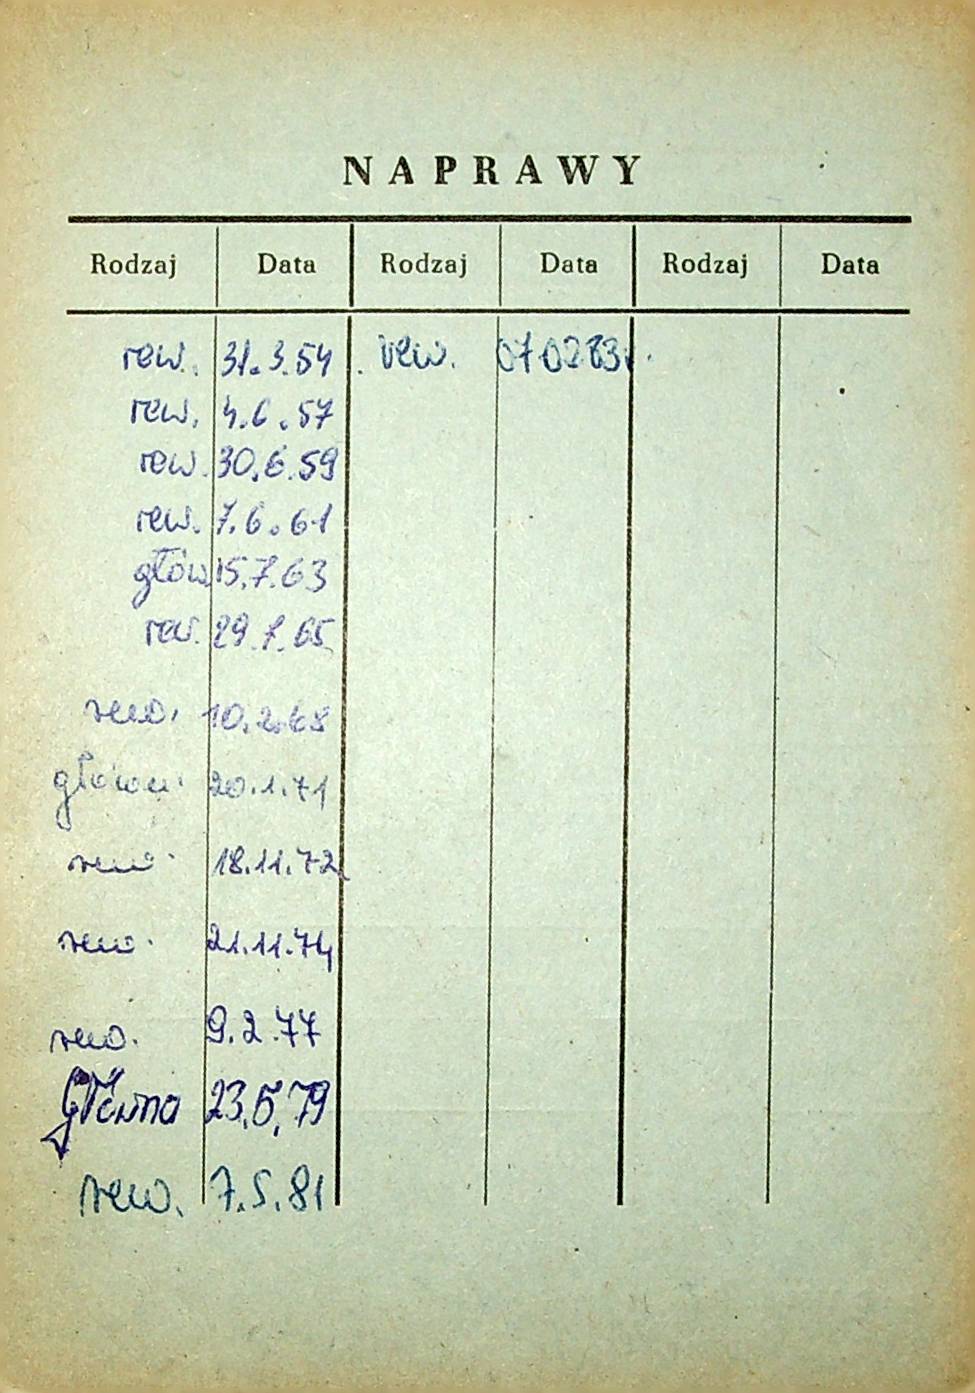 NAPRAWY
Rodzaj Data Rodzaj Data Rodzaj Data
rew. 31.3.54 rew. 07.02.83r.
rew. 4.6.57
rew. 30.6.59
rew. 7.6.61
głów. 15.7.63
rew. 29.7.65
rew. 10.2.68
główn. 20.1.71
rew. 18.11.72
rew. 21.11.74
rew. 9.2.77
Główna 23.5.79
rew. 7.5.81